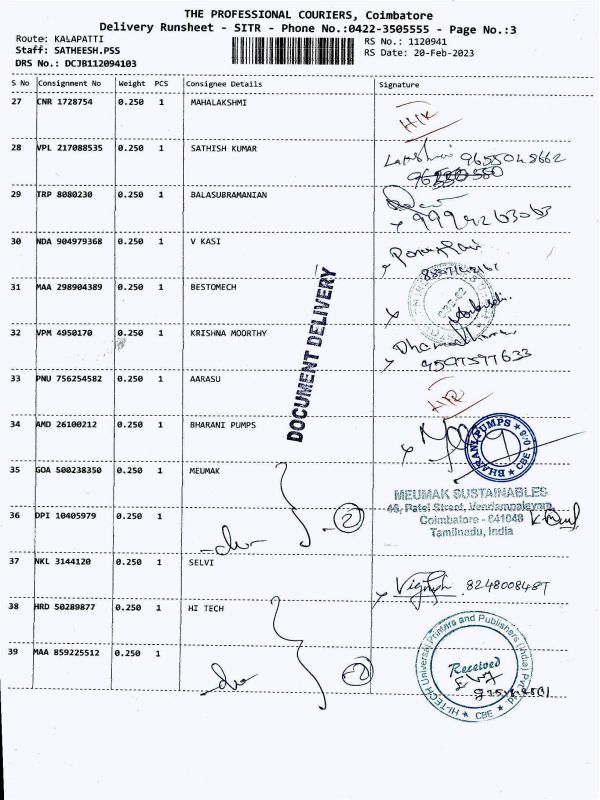 THE PROFESSIONAL COURIERS, Coimbatore
Delivery Runsheet - SITR - Phone No.:0422-3505555 - Page No.:3
Route: KALAPATTI
RS No.: 1120941
Staff: SATHEESH.PSS
RS Date: 20-Feb-2023
DRS No.: DCJB112094103
S No Consignment No Weight PCS Consignee Details Signature
27 CNR 1728754 0.250 1 MAHALAKSHMI
28 VPL 217088535 0.250 1 SATHISH KUMAR
9655045662
29 TRP 8080230 0.250 1 BALASUBRAMANIAN
30 NDA 904979368 0.250 1 V KASI
31 MAA 298904389 0.250 1 BESTOMECH
32 VPM 4950170 0.250 1 KRISHNA MOORTHY
9597597633
33 PNU 756254582 0.250 1 AARASU
DOCUMENT DELIVERY
34 AMD 26100212 0.250 1 BHARANI PUMPS
BHARANI PUMPS CBE
35 GOA 500238350 0.250 1 MEUMAK
MEUMAK SUSTAINABLES
46, Patel Street, Veeriampalayam,
36 DPI 10405979 0.250 1
2
Coimbatore - 641048
Tamilnadu, India
37 NKL 3144120 0.250 1 SELVI
8248008487
38 HRD 50289877 0.250 1 HI TECH
39 MAA 859225512 0.250 1
2
HI-TECH Universal Printers and Publishers (India) Pvt. Ltd. CBE
Received